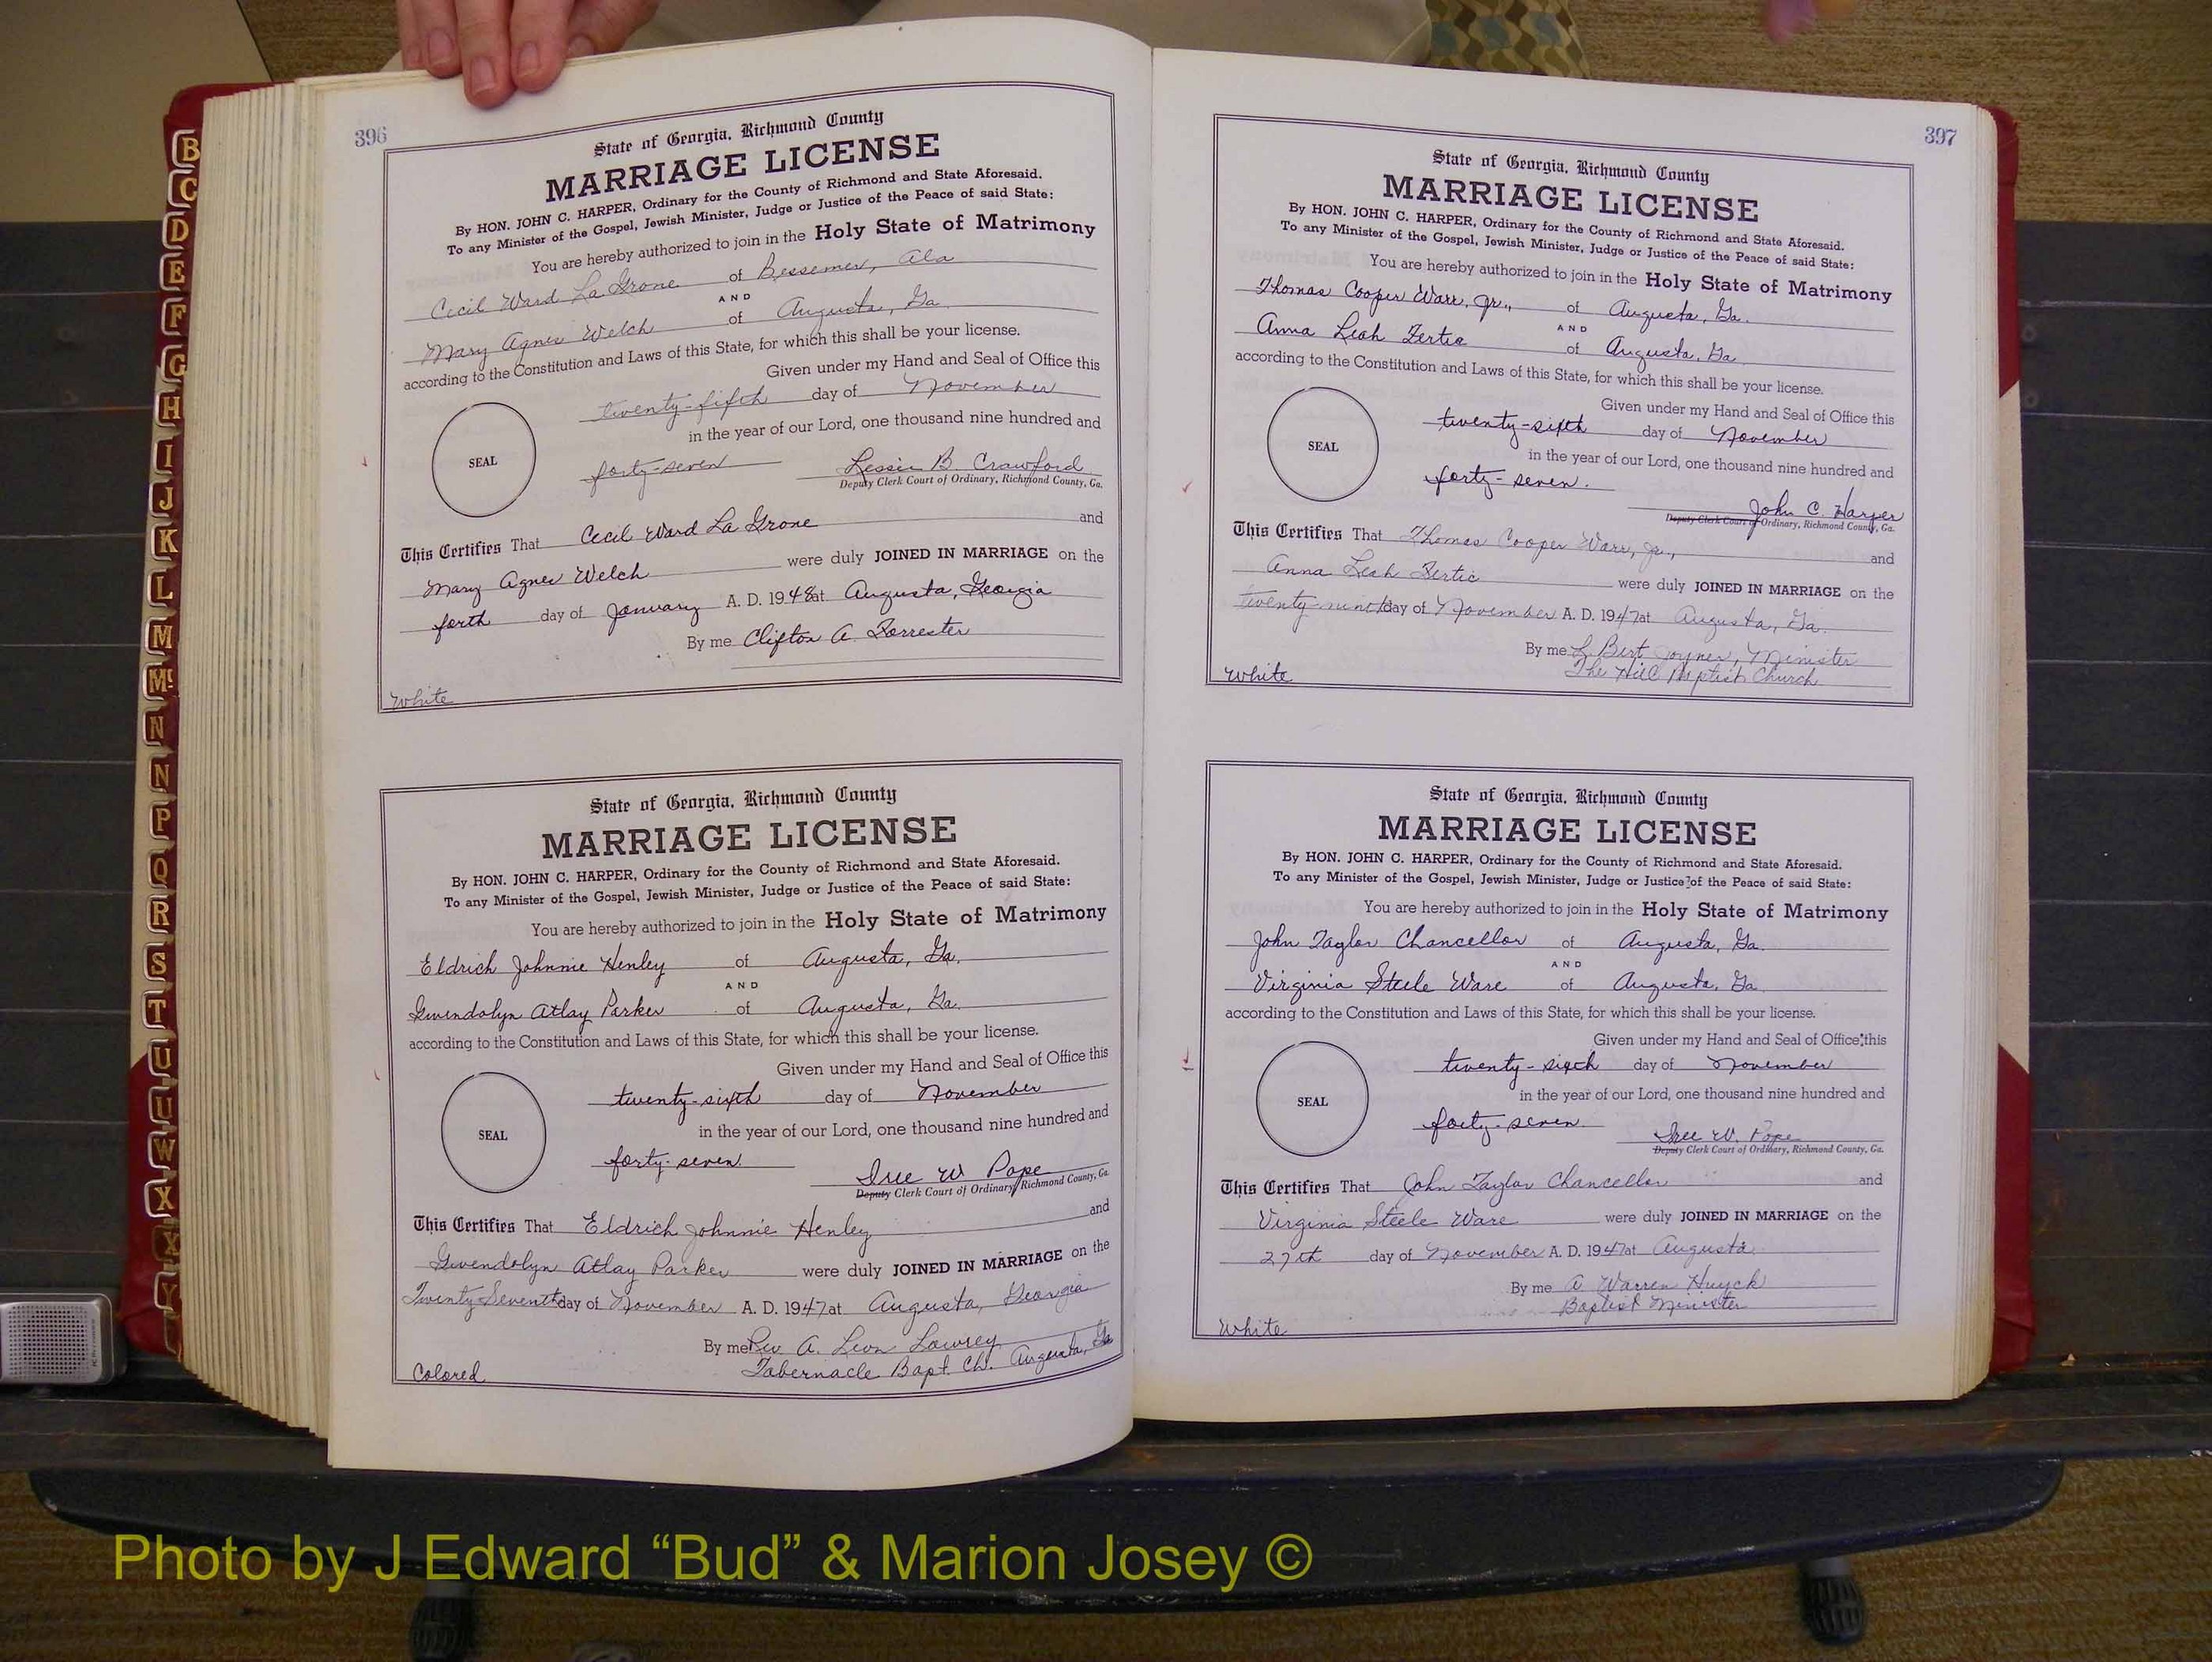 396
State of Georgia, Richmond County
MARRIAGE LICENSE
By HON. JOHN C. HARPER, Ordinary for the County of Richmond and State Aforesaid.
To any Minister of the Gospel, Jewish Minister, Judge or Justice of the Peace of said State:
You are hereby authorized to join in the Holy State of Matrimony
Cecil Ward La Grone of Bessemer, Ala
AND
Mary Agnes Welch of Augusta, Ga
according to the Constitution and Laws of this State, for which this shall be your license.
Given under my Hand and Seal of Office this
twenty-fifth day of November
in the year of our Lord, one thousand nine hundred and
SEAL
forty-seven Lessie B. Crawford
Deputy Clerk Court of Ordinary, Richmond County, Ga.
This Certifies That Cecil Ward La Grone and
Mary Agnes Welch were duly JOINED IN MARRIAGE on the
forth day of January A. D. 1948 at Augusta, Georgia
By me Clifton A. Forrester
White
State of Georgia, Richmond County
MARRIAGE LICENSE
By HON. JOHN C. HARPER, Ordinary for the County of Richmond and State Aforesaid.
To any Minister of the Gospel, Jewish Minister, Judge or Justice of the Peace of said State:
You are hereby authorized to join in the Holy State of Matrimony
Eldrich Johnnie Henley of Augusta, Ga.
AND
Gwendolyn Atlay Parker of Augusta, Ga.
according to the Constitution and Laws of this State, for which this shall be your license.
Given under my Hand and Seal of Office this
twenty-sixth day of November
in the year of our Lord, one thousand nine hundred and
SEAL
forty-seven Iree W Pope
Deputy Clerk Court of Ordinary, Richmond County, Ga
This Certifies That Eldrich Johnnie Henley and
Gwendolyn Atlay Parker were duly JOINED IN MARRIAGE on the
Twenty-Seventh day of November A. D. 1947 at Augusta, Georgia
By me Rev A. Leon Lowrey
Tabernacle Bapt. Ch. Augusta, Ga
Colored
397
State of Georgia, Richmond County
MARRIAGE LICENSE
By HON. JOHN C. HARPER, Ordinary for the County of Richmond and State Aforesaid.
To any Minister of the Gospel, Jewish Minister, Judge or Justice of the Peace of said State:
You are hereby authorized to join in the Holy State of Matrimony
Thomas Cooper Warr, Jr., of Augusta, Ga.
AND
Anna Leah Fertic of Augusta, Ga
according to the Constitution and Laws of this State, for which this shall be your license.
Given under my Hand and Seal of Office this
twenty-sixth day of November
in the year of our Lord, one thousand nine hundred and
SEAL
forty-seven. John C. Harper
Deputy Clerk Court of Ordinary, Richmond County, Ga.
This Certifies That Thomas Cooper Warr, Jr., and
Anna Leah Fertic were duly JOINED IN MARRIAGE on the
twenty-ninth day of November A. D. 1947 at Augusta, Ga.
By me L. Bert Joyner, Minister
The Hill Baptist Church
White
State of Georgia, Richmond County
MARRIAGE LICENSE
By HON. JOHN C. HARPER, Ordinary for the County of Richmond and State Aforesaid.
To any Minister of the Gospel, Jewish Minister, Judge or Justice of the Peace of said State:
You are hereby authorized to join in the Holy State of Matrimony
John Taylor Chancellor of Augusta, Ga.
AND
Virginia Steele Ware of Augusta, Ga
according to the Constitution and Laws of this State, for which this shall be your license.
Given under my Hand and Seal of Office this
twenty-sixth day of November
in the year of our Lord, one thousand nine hundred and
SEAL
forty-seven. Iree W. Pope
Deputy Clerk Court of Ordinary, Richmond County, Ga.
This Certifies That John Taylor Chancellor and
Virginia Steele Ware were duly JOINED IN MARRIAGE on the
27th day of November A. D. 1947 at Augusta
By me A Warren Huyck
Baptist Minister
White
B
C
D
E
F
G
H
I
J
K
L
M
Mc
N
N
P
Q
R
S
T
U
U
W
X
X
Y
Photo by J Edward “Bud” & Marion Josey ©